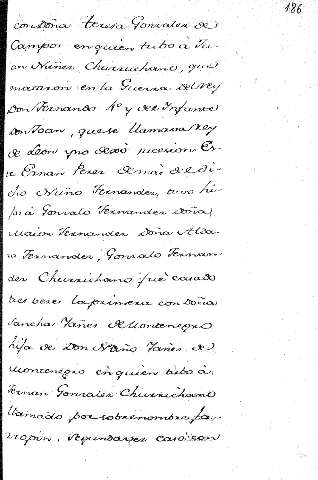 186
con Doña Teresa Gonzalez de
Campos en quien tubo à Ju-
an Nuñez Churrichano, que
mataron en la Guerra del Rey
Don Fernando 4º y del Infante
Don Joan, que se llamava Rey
de Leon y no dexò sucesion Es-
te Ernan Perez demàs de el di-
cho Nuño Fernandez, tuvo hi-
jos à Gonzalo Fernandez Doña
Maior Fernandez Doña Alda-
ra Fernandez, Gonzalo Fernan-
dez Churrichano fuè casado
tres veses la primera con Doña
Sancha Yañes de Montenegro
hija de Don Nuño Yañes de
Montenegro en quien tubo à
Fernan Gonzalez Churrichano
llamado por sobrenombre
segunda vez casò con